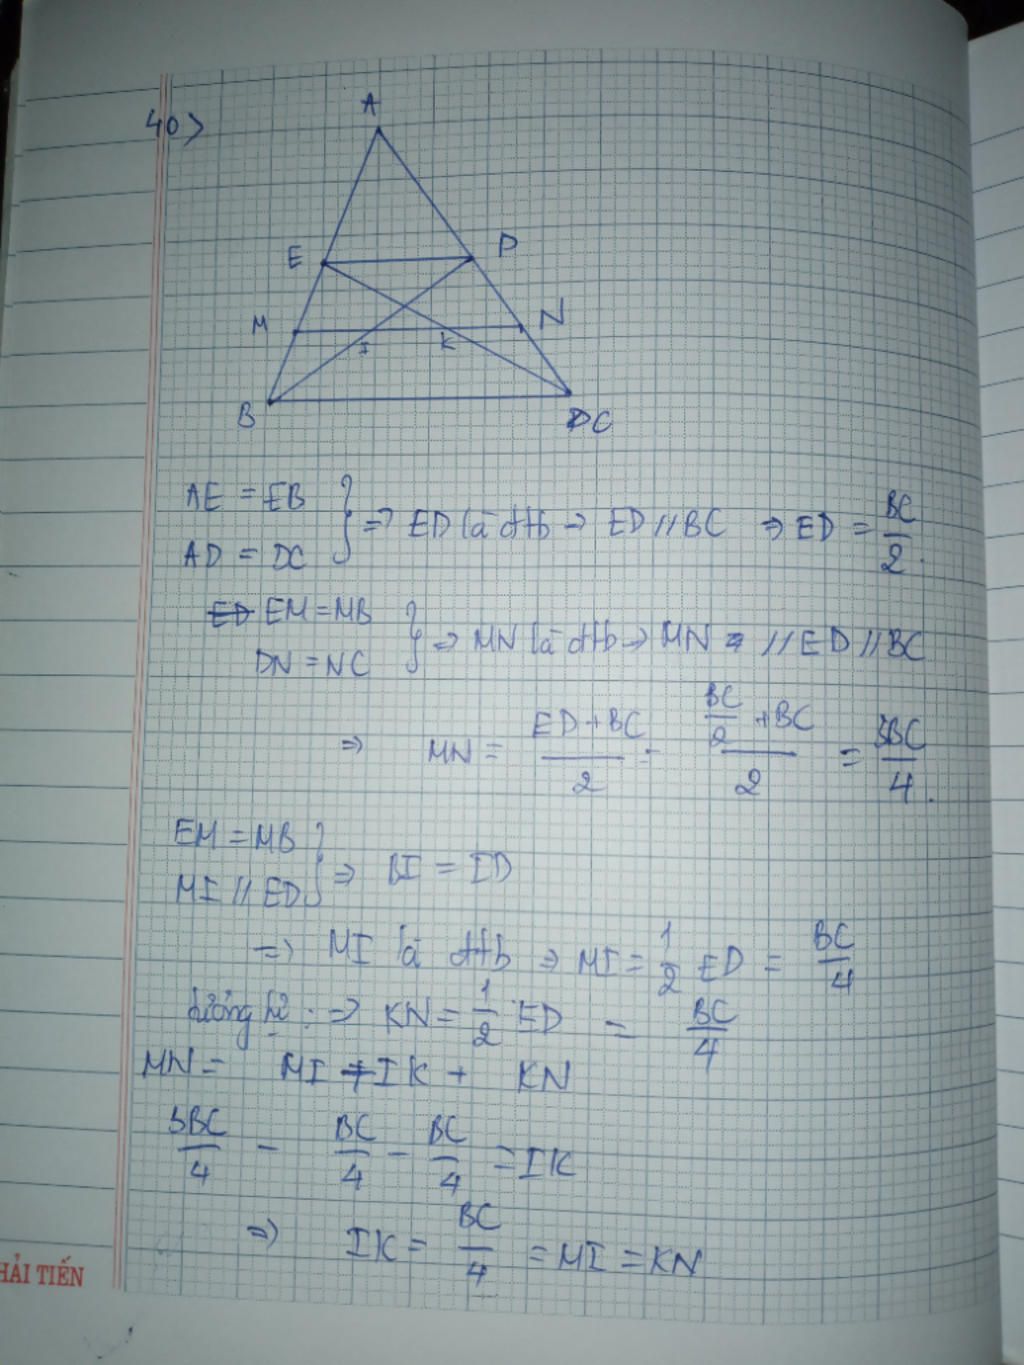 40>
A
E D
M N
I K
B C
AE = EB
AD = DC } => ED là đtb -> ED // BC => ED = BC/2.
EM = MB
DN = NC } => MN là đtb -> MN // ED // BC
=> MN = (ED + BC)/2 = (BC/2 + BC)/2 = 3BC/4.
EM = MB
MI // ED } => BI = ID
=> MI là đtb => MI = 1/2 ED = BC/4
tương tự : => KN = 1/2 ED = BC/4
MN = MI + IK + KN
3BC/4 - BC/4 - BC/4 = IK
=> IK = BC/4 = MI = KN
HẢI TIẾN